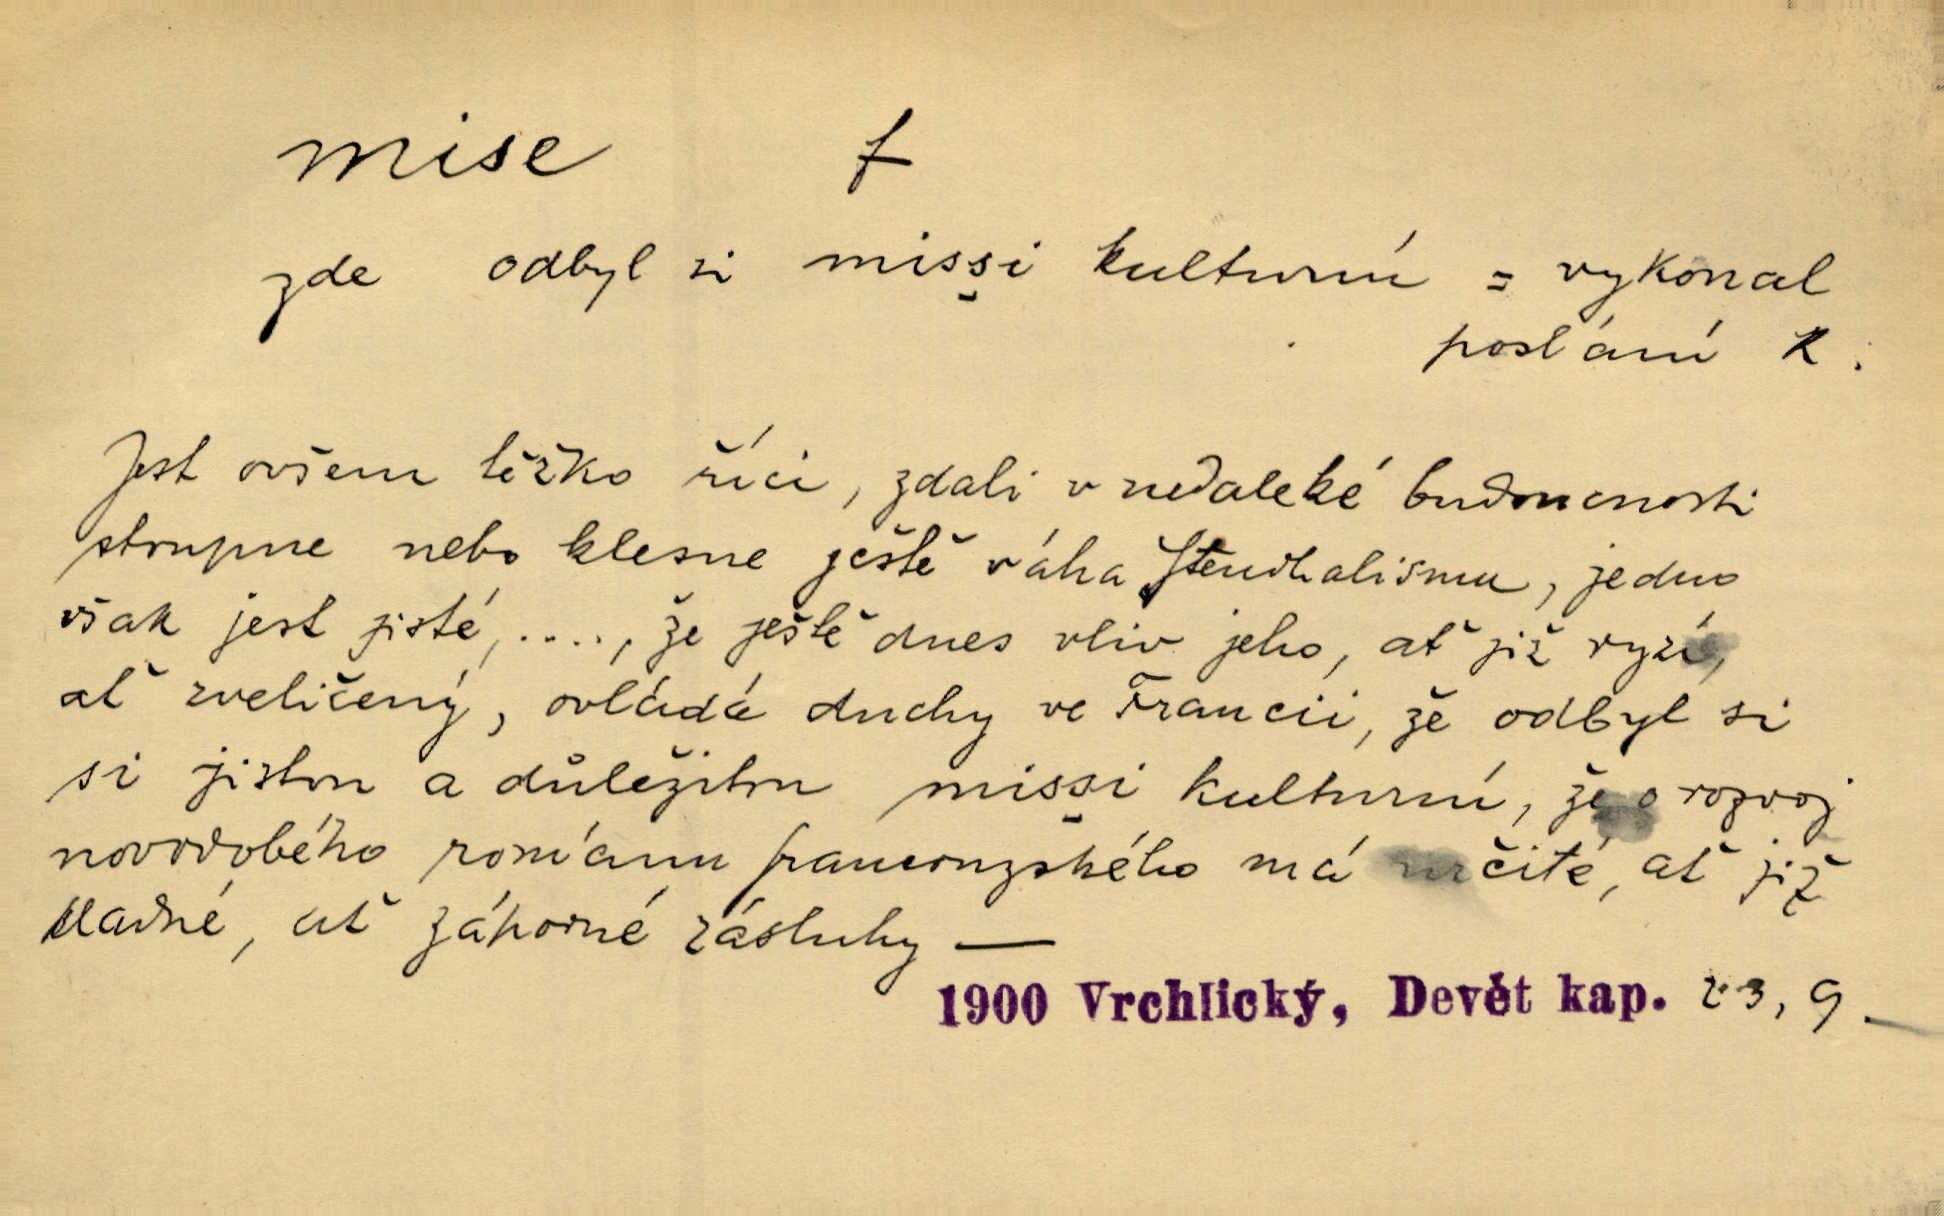 mise f
zde odbyl si missi kulturní = vykonal
poslání k.
Jest ovšem těžko říci, zdali v nedaleké budoucnosti
stoupne nebo klesne ještě váha Stendhalismu, jedno
však jest jisté, ...., že ještě dnes vliv jeho, ať již ryzí,
ať zveličený, ovládá duchy ve Francii, že odbyl si
si jistou a důležitou missi kulturní, že o rozvoj
novodobého románu francouzského má určité, ať již
kladné, ať záporné zásluhy —
1900 Vrchlický, Devět kap. 23, 9.